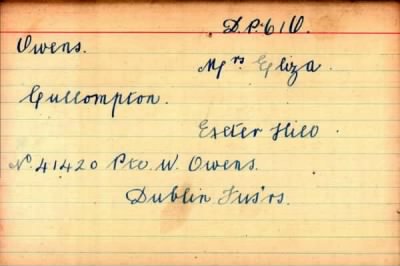 D.P. 610.
Owens.
Mrs Eliza.
Cullompton.
Exeter Hill.
No. 41420 Pte. W. Owens.
Dublin Fus'rs.